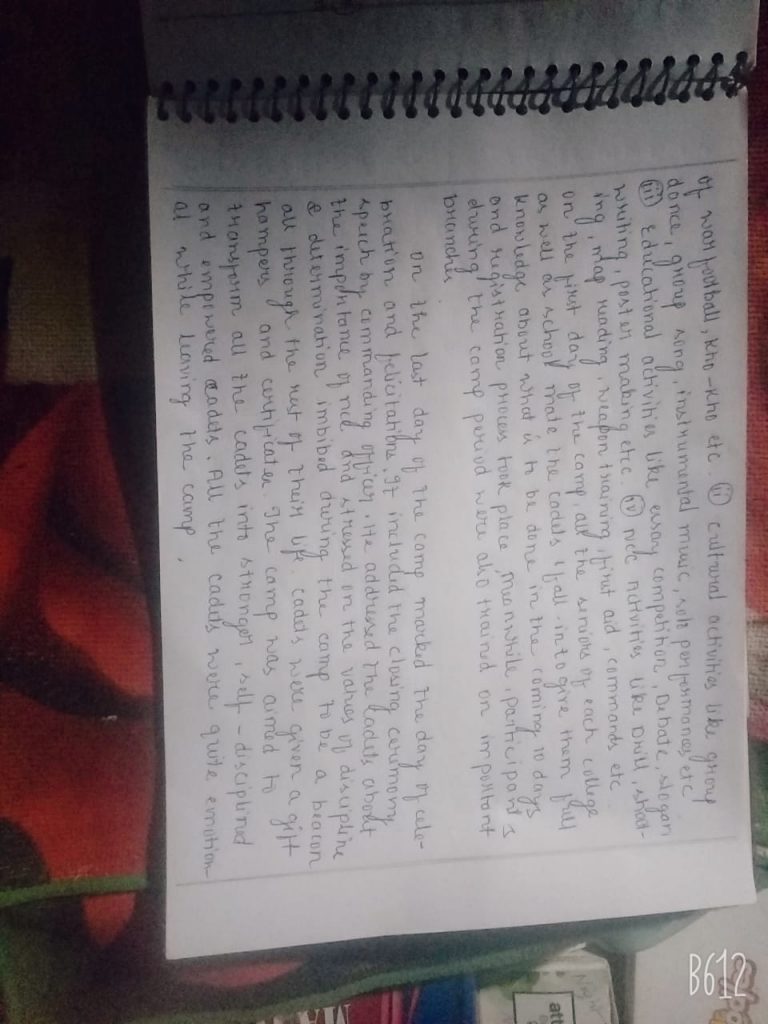 of war, football, Kho-Kho etc (ii) cultural activities like group
dance, group song, instrumental music, solo performances etc
(iii) Educational activities like essay competition, Debate, slogan
writing, poster making etc. (iv) ncc activities like Drill, shoot-
ing, map reading, weapon training, first aid, commands etc
on the first day of the camp, all the seniors of each college
as well as school made the cadets fall in to give them full
knowledge about what is to be done in the coming 10 days
and registration process took place, meanwhile, participants
during the camp period were also trained on important
branches
on the last day of the camp marked the day of cele-
bration and felicitations. It included the closing ceremony
speech by commanding officer. He addressed the cadets about
the importance of ncc and stressed on the values of discipline
& determination imbibed during the camp to be a beacon
all through the rest of their life. cadets were given a gift
hampers and certificates. The camp was aimed to
transform all the cadets into stronger, self-disciplined
and empowered cadets. All the cadets were quite emotion-
al while leaving the camp.
att
B612